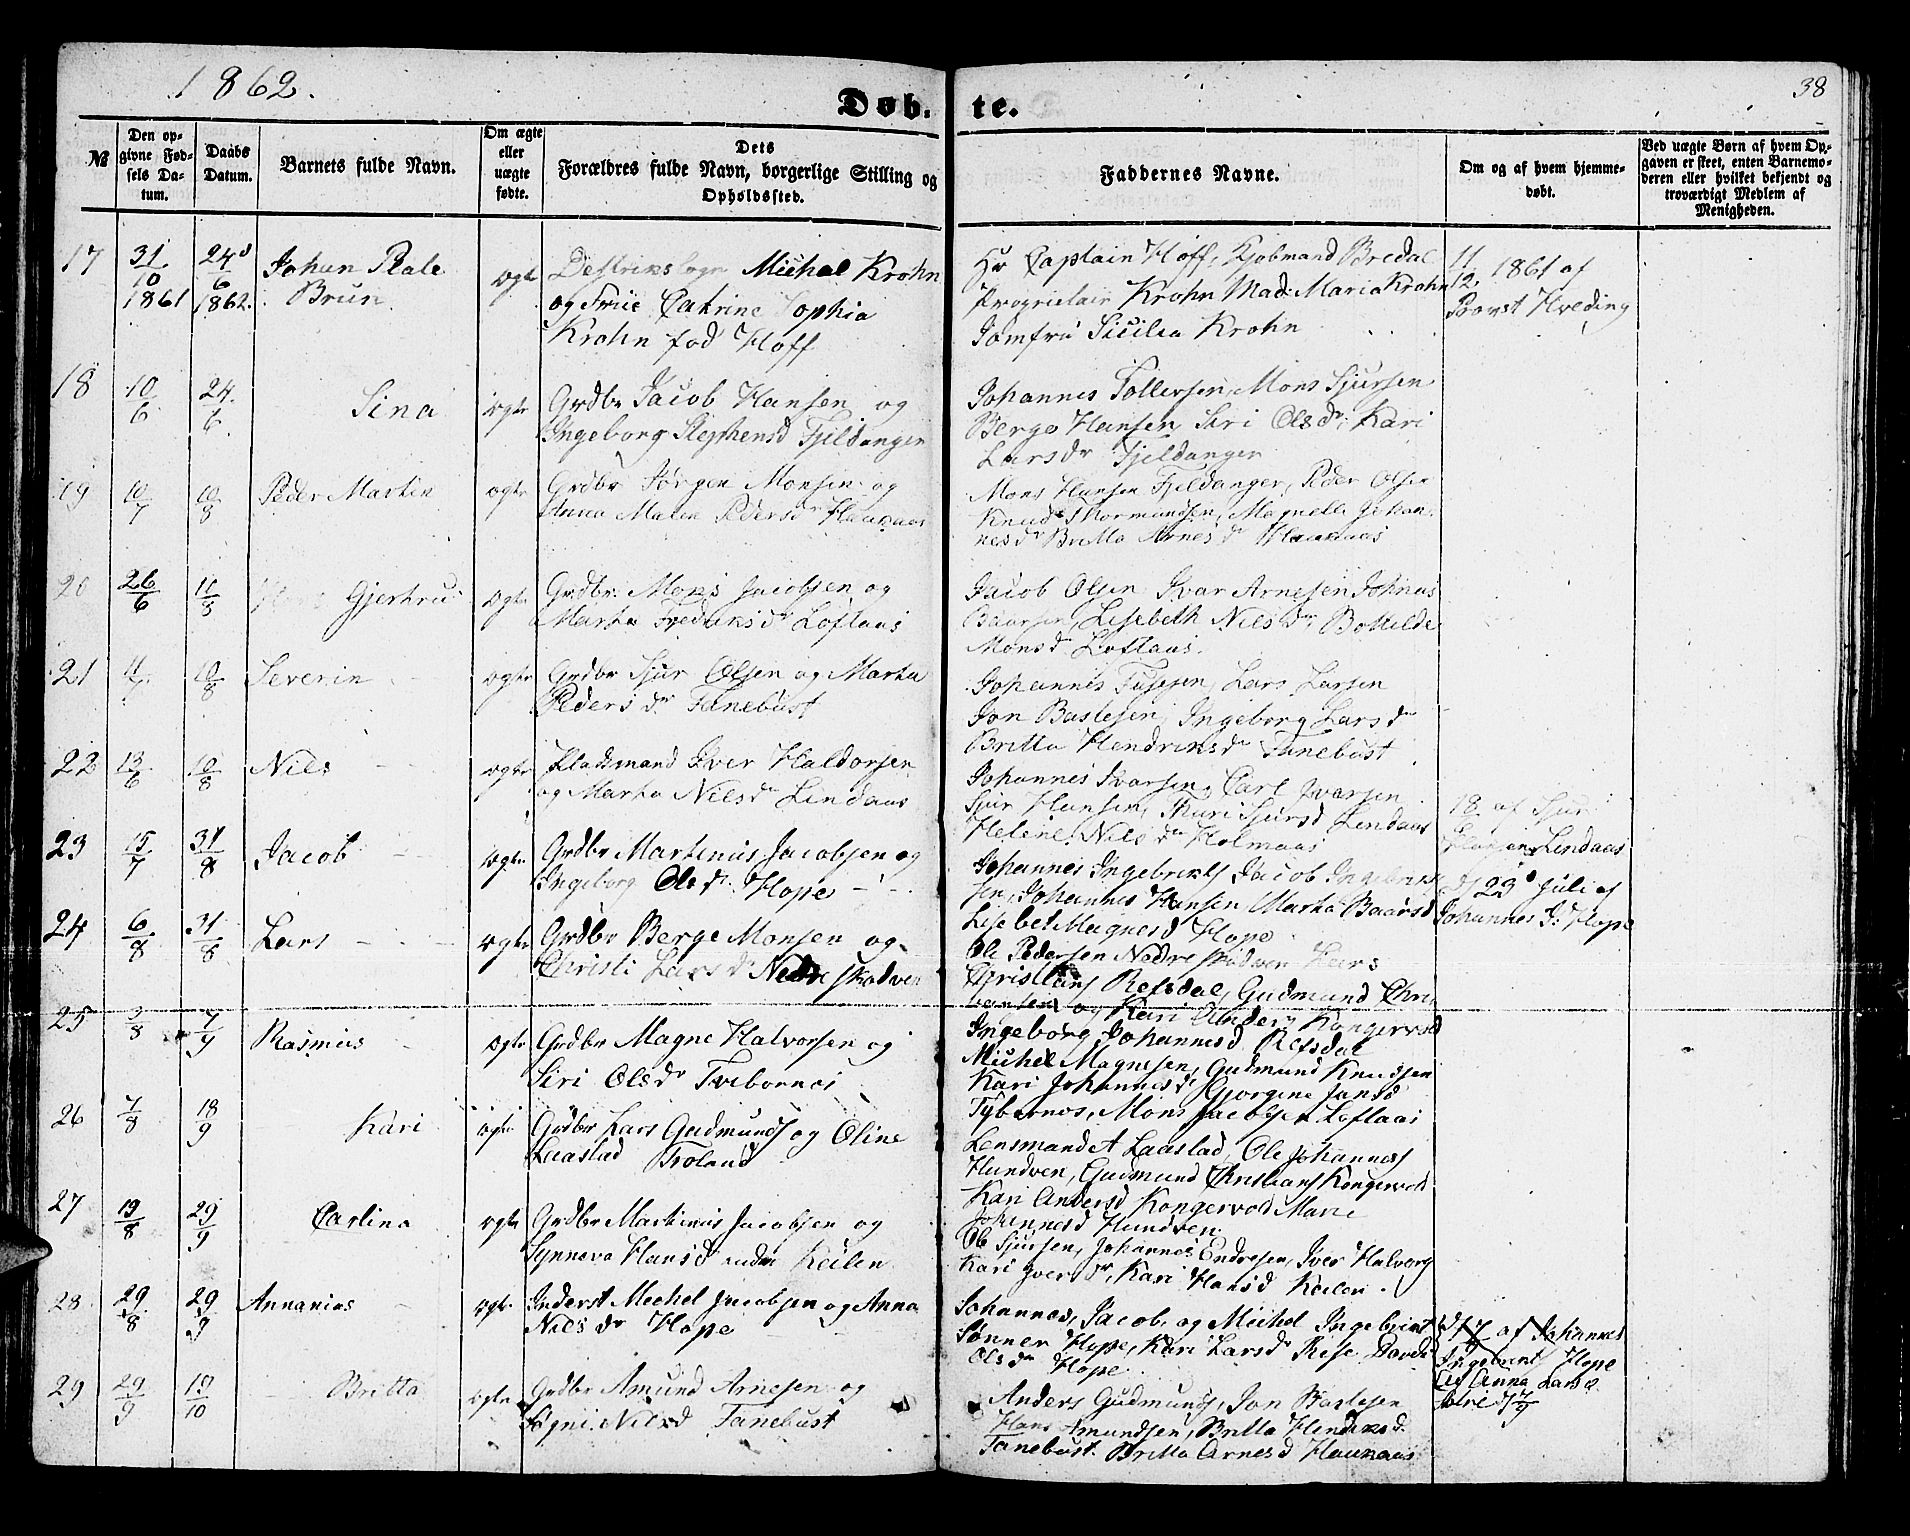 1862.
Døb-
te.
38
№
Den op-
givne Fød-
sels Da-
tum.
Daabs
Datum.
Barnets fulde Navn.
Om ægte
eller
uægte
fødte.
Dets
Forældres fulde Navn, borgerlige Stilling og
Opholdssted.
Faddernes Navne.
Om og af hvem hjemme-
døbt.
Ved uægte Børn af hvem Op-
gaven er skeet, enten Barnemo-
deren eller hvilket bekjendt og
troværdigt Medlem af
Menigheden.
17
31/10 1861
24/6 1862.
Johan
Brun
ægte
Michal Krohn
og Frue Catrine Sophia
Krohn fød Hoff
Hr Captain Hoff, Kjøbmand Bredal
Proprietair Krohn Mad: Maria Krohn
Jomfru Sicilia Krohn
11/12 1861 af
Provst Hveding
18
10/6
24/6
Sina
ægte
Grdbr Jacob Hansen og
Ingeborg Stephensd Fjeldanger
Johannes Tollevsen, Mons Sjursen
Berge Hansen Siri Olsdr. Kari
Larsdr Fjeldanger
19
10/7
10/8
Peder Martin
ægte
Grdbr Jørgen Monsen og
Anna Malen Pedersdr Haukaas
Mons Hansen Fjeldanger, Peder Olsen
Knud Thormundsen, Magnelle Johan-
nesdr Britta Arnesdr Haukaas
20
26/6
10/8
Gjertru
ægte
Grdbr. Mons Jacobsen og
Marta Fredriksdr Loftaas
Jacob Olsen Ivar Arnesen Johnas
Baarsen, Lisebeth Nilsdr, Bottilde
Monsdr Loftaas.
21
11/7
10/8
Severin
ægte
Grdbr Sjur Olsen og Marta
Pedersdr Tanebust
Johannis Larsen
Jon Bastesen, Ingeborg Larsdr
Britta Hendriksdr Tanebust
22
13/6
10/8
Nils
ægte
Pladsmand Iver Haldorsen
og Marta Nilsdr Lindaas
Johannes Ivarsen, Carl Ivarsen
Sjur Hansen, Thuri Sjursd Lindaas
Helene Nilsdr Holmaas
af Sjur
Hansen Lindaas
23
15/7
31/8
Jacob
ægte
Grdbr Martinus Jacobsen og
Ingeborg Olsdr. Hope
Johannes Ingebrikts Jacob Ingebrikt-
sen, Johannes Hansen, Marta Baarsd
Lisebet Magnesd Hope
D 23 Juli af
Johannes J. Hope
24
6/8
31/8
Lars
ægte
Grdbr Berge Monsen og
Christi Larsdr Nedre Skodven
Ole Pedersen Nedre Skodven Lars
Christians Refsdal, Gudmund Chri-
tiansen og Kari Andersd Kongervold
Ingeborg Johannesd Refsdal
25
3/8
7/9
Rasmus
ægte
Grdbr Magne Halvorsen og
Siri Olsdr Tvibornes
Michel Magnesen, Gudmund Knudsen
Kari Johannesdr Gjorgine Jansd
Tybernes, Mons Jacobsen Loftaas
26
7/8
18/9
Kari
ægte
Grdbr Lars Gudmunds og Oline
Laastad Troland
Lensmand A Laastad, Ole Johannes
Hundven, Gudmund Christians Kongervold
Kari Andersd Kongervold Marie
Johannesd Hundven
27
19/8
29/9
Carlina
ægte
Grdbr Martinus Jacobsen og
Synneva Hansdr Keilen
Ole Sjursen, Johannes Endresen, Iver Halvors
Kari Iversdr, Kari Hansd Keilen.
28
29/8
29/9
Annanias
ægte
Inderst Mechel Jacobsen og Anna
Nilsdr Hope
Johannes, Jacob, og Michel Ingebrigt
Sønner Hope, Kari Larsdr Risø
Olsdr Hope.
af Johannes
Ingebrigt Hope
Af Anna Larsd
29
29/9
19/10
Britta
ægte
Grdbr Amund Arnesen og
Nilsd Tanebust
Anders Gudmunds, Jon Bastesen
Hans Amundsen, Britta Hendriksd
Tanebust. Britta Arnesd Haukaas